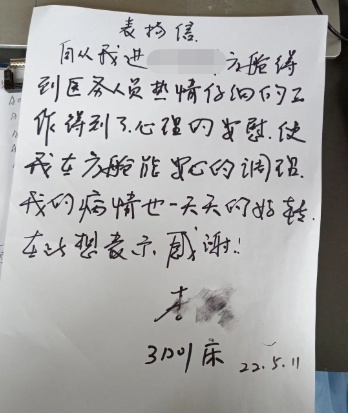 表扬信
自从我进 方舱得
到医务人员热情仔细的工
作得到了心理的安慰.使
我在方舱能安心的调理.
我的病情也一天天的好转.
在此想表示感谢!
李
3D01床 22.5.11